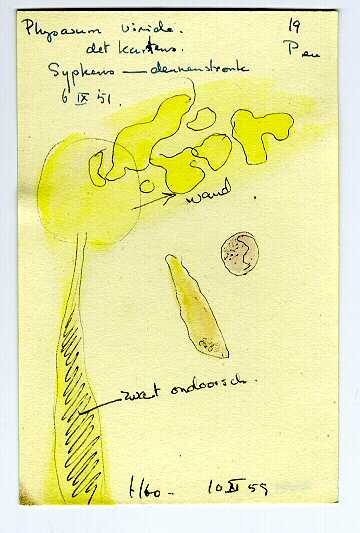 Physarum viride.
19
det Karstens.
P
Sypkens — dennenstronk
6 IX 51.
wand
zwart ondoorsch.
t/60 - 10 XI 59